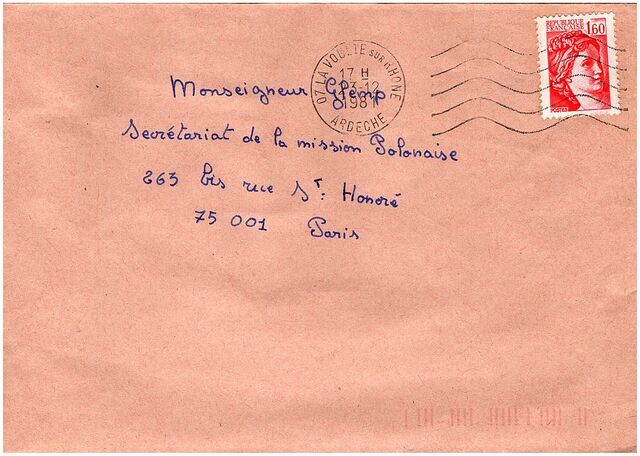 REPUBLIQUE FRANÇAISE 1,60
POSTES
07 LA VOULTE SUR RHONE
17 H
13-12
1981
ARDECHE
Monseigneur Glemp
Secrétariat de la mission Polonaise
263 bis rue St. Honoré
75 001 Paris